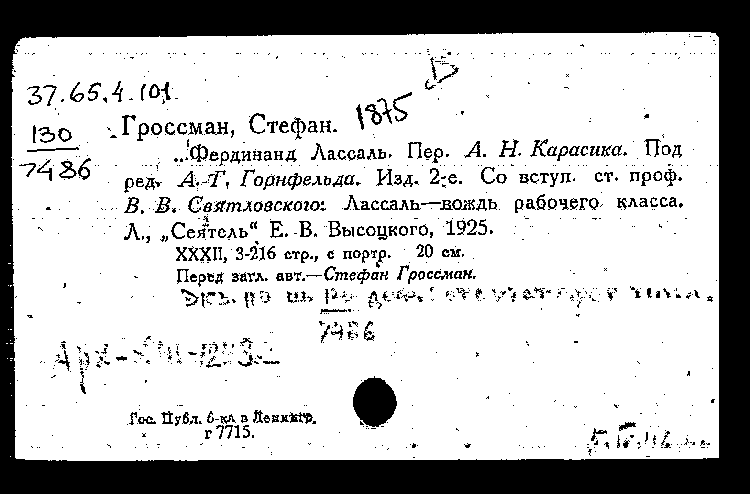 В
37.65.4.101
1875
130
7486
Гроссман, Стефан.
...Фердинанд Лассаль. Пер. А. Н. Карасика. Под
ред. А. Г. Горнфельда. Изд. 2-е. Со вступ. ст. проф.
В. В. Святловского: Лассаль—вождь рабочего класса.
Л., „Сеятель“ Е. В. Высоцкого, 1925.
XXXII, 3-216 стр., с портр. 20 см.
Перед загл. авт.—Стефан Гроссман.
Экз. по ш.
7486
Гос. Публ. б-ка в Ленингр.
г 7715.